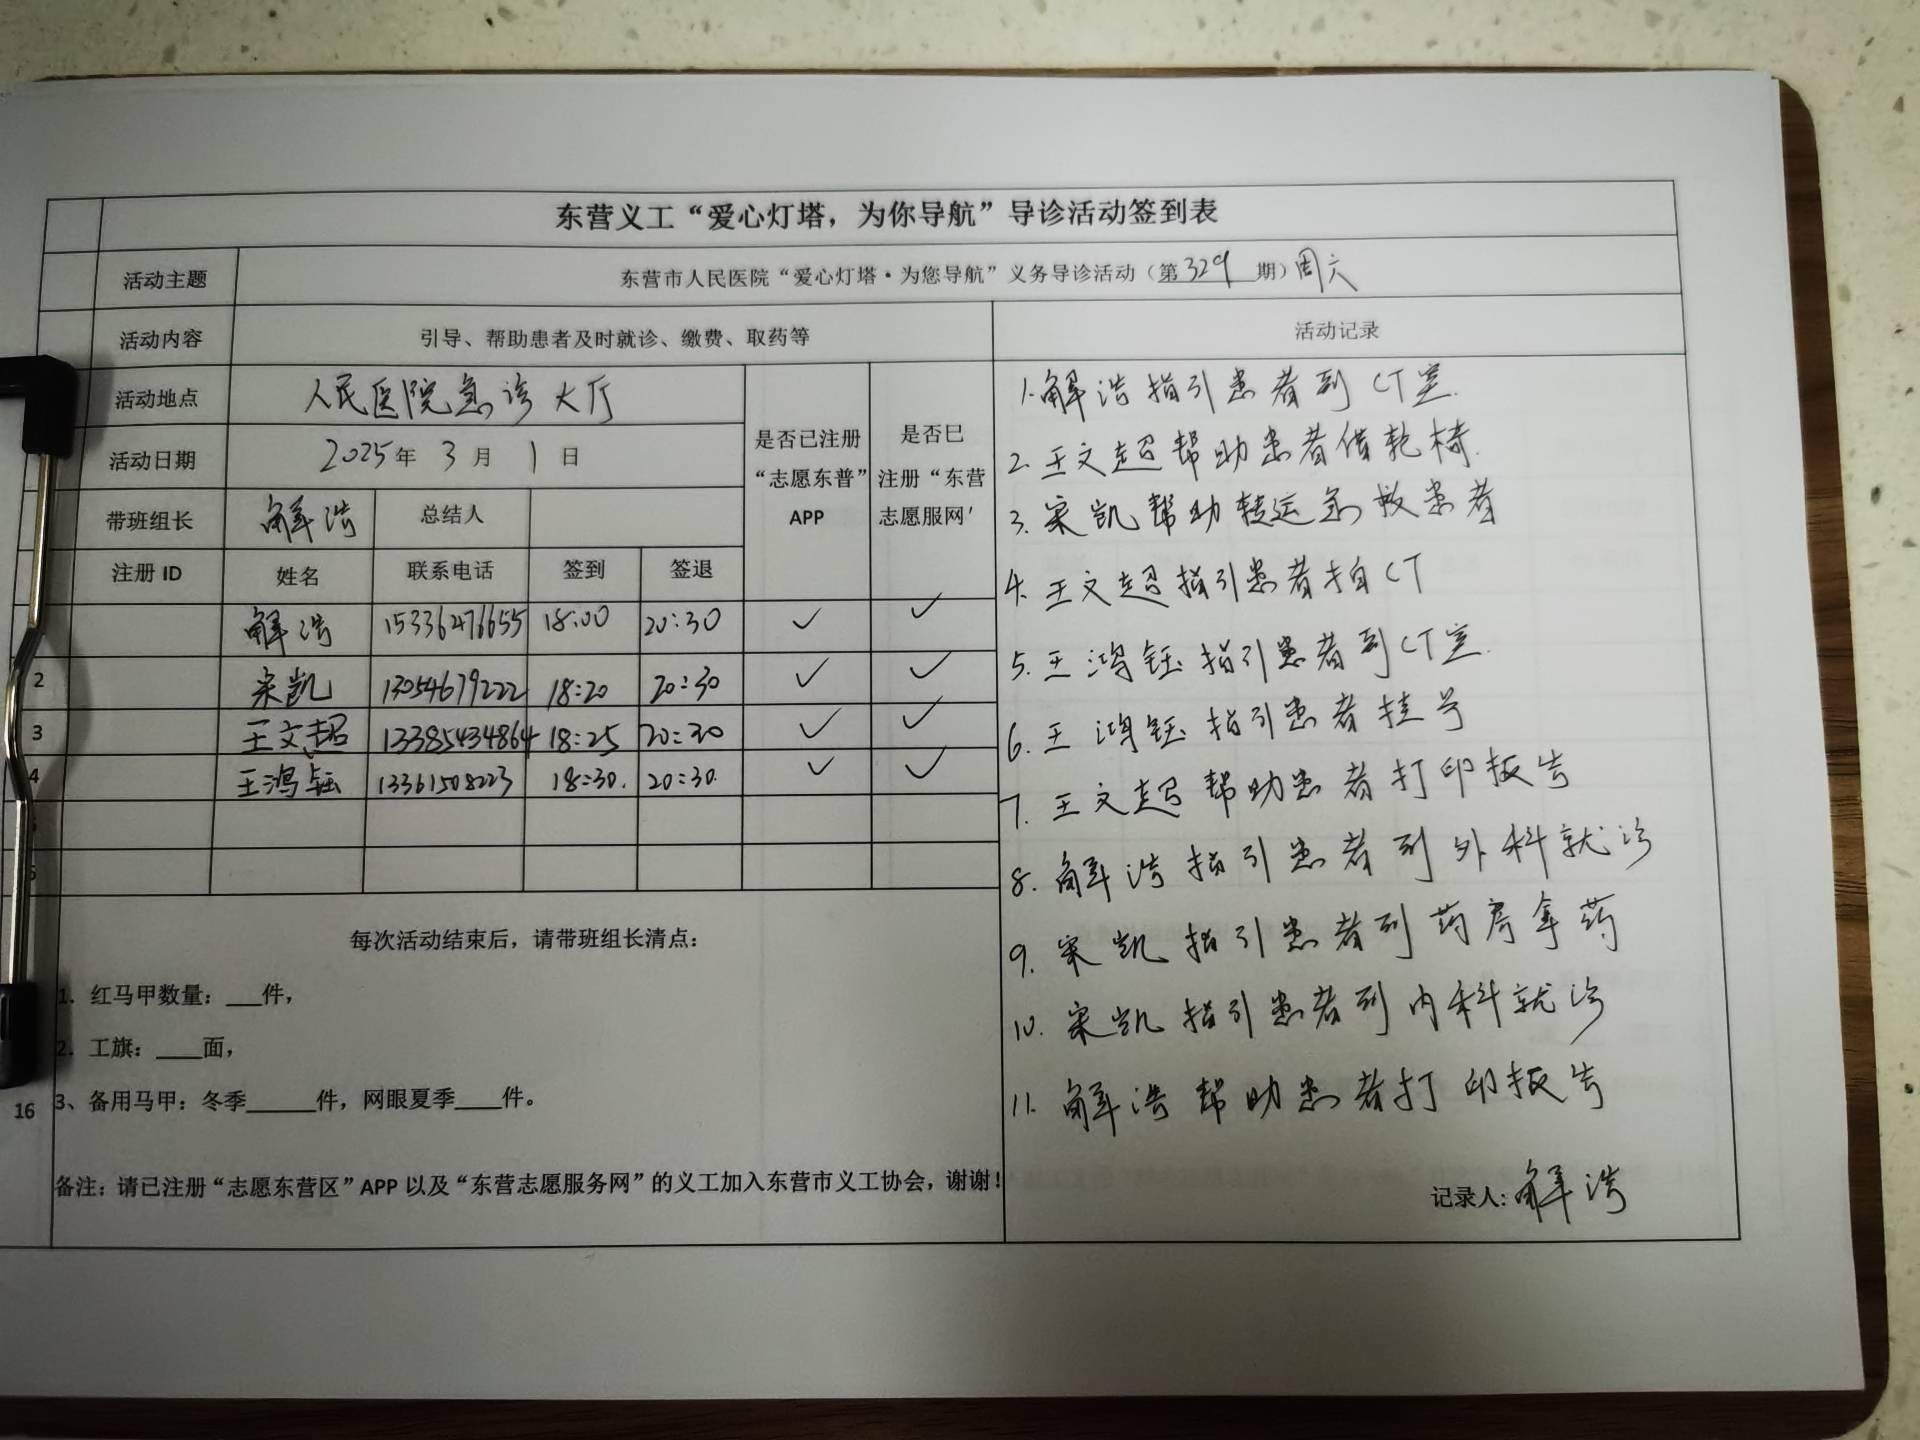 东营义工“爱心灯塔，为你导航”导诊活动签到表
活动主题 东营市人民医院“爱心灯塔·为您导航”义务导诊活动（第329期）周六
活动内容 引导、帮助患者及时就诊、缴费、取药等
活动地点 人民医院急诊大厅
活动日期 2025年 3月 1日
是否已注册“志愿东普”APP
是否已注册“东营志愿服网'
带班组长 解浩 总结人
注册ID 姓名 联系电话 签到 签退
解浩 15336476655 18:00 20:30 ✓ ✓
2 宋凯 13054679222 18:20 20:30 ✓ ✓
3 王文超 13385434864 18:25 20:30 ✓ ✓
4 王鸿钰 13361508223 18:30. 20:30. ✓ ✓
5
6
每次活动结束后，请带班组长清点：
1. 红马甲数量：___件，
2. 工旗：____面，
16 3、备用马甲：冬季______件，网眼夏季____件。
备注：请已注册“志愿东营区”APP 以及“东营志愿服务网”的义工加入东营市义工协会，谢谢！
活动记录
1.解浩指引患者到CT室.
2.王文超帮助患者借轮椅.
3.宋凯帮助转运急救患者
4.王文超指引患者拍CT
5.王鸿钰指引患者到CT室.
6.王鸿钰指引患者挂号
7.王文超帮助患者打印报告
8.解浩指引患者到外科就诊
9.宋凯指引患者到药房拿药
10.宋凯指引患者到内科就诊
11.解浩帮助患者打印报告
记录人：解浩